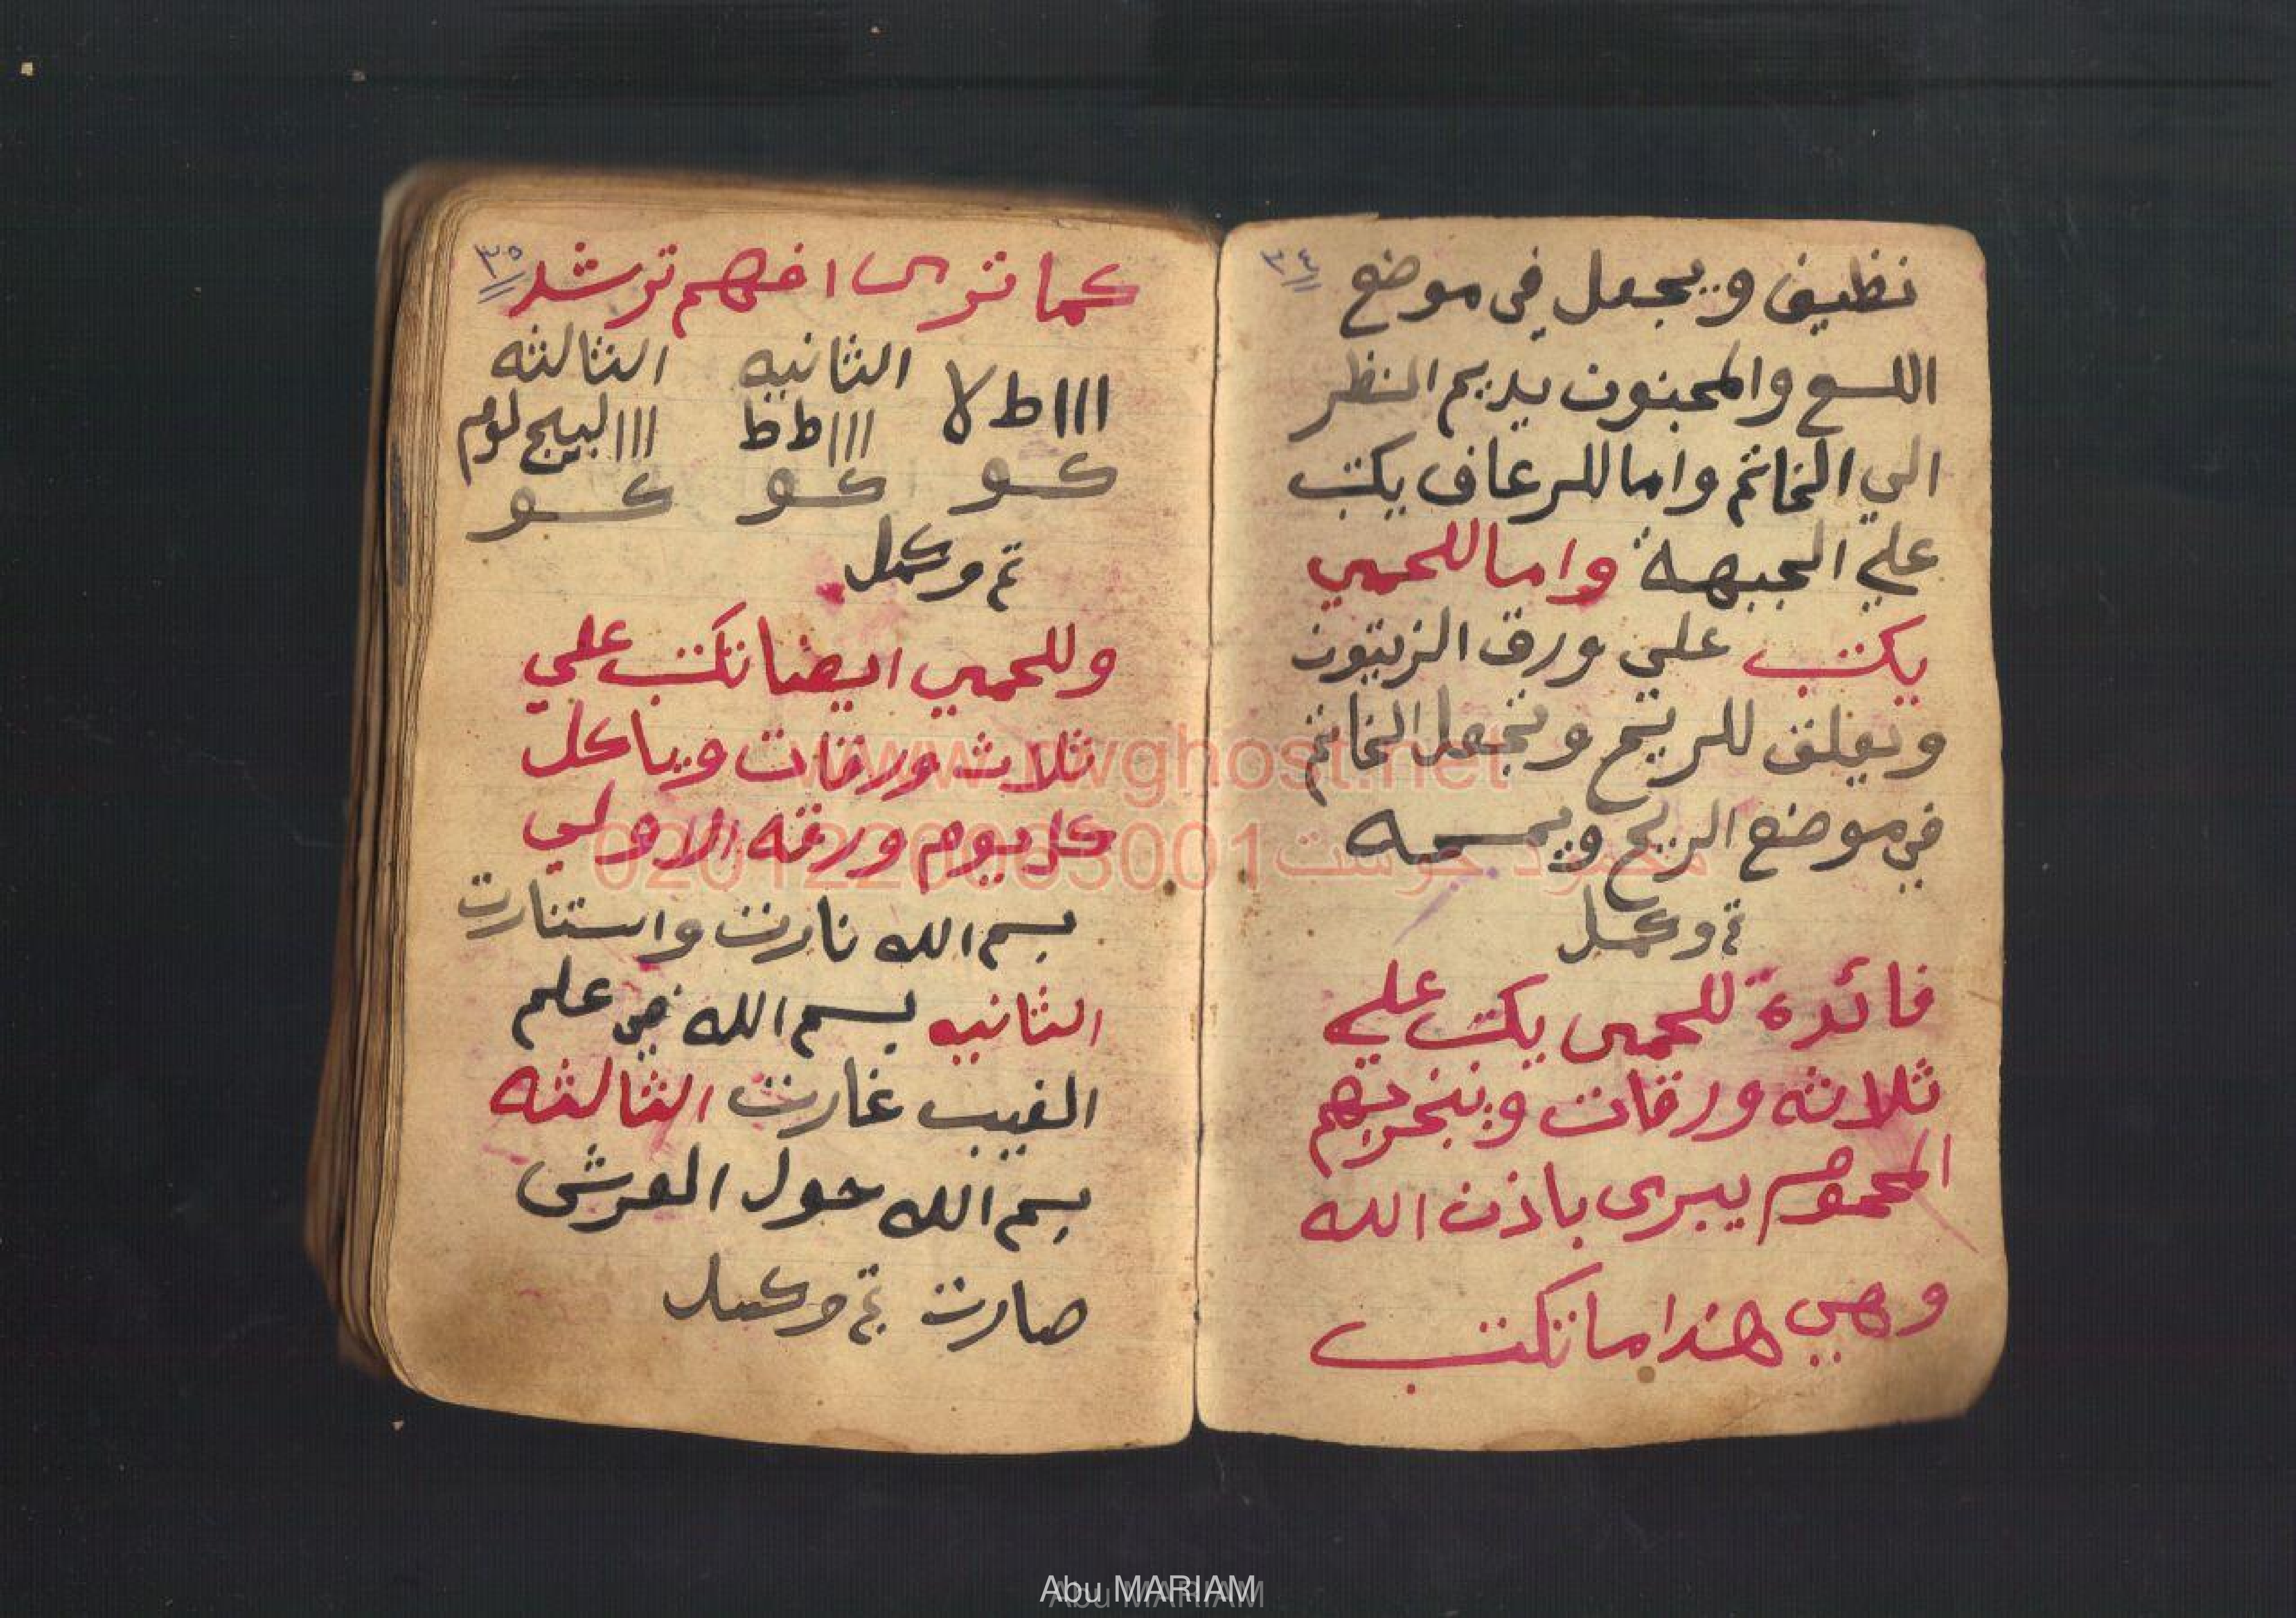 ٣٤
نظيف ويجعل في موضع
اللسع والمجنون يديم النظر
الي الخاتم واما للرعاف يكتب
علي الجبهة واما للحمي
يكتب علي ورق الزيتون
وتعلق للريح وتجعل الخاتم
في موضع الريح ويمسحه
تم وكمل
فائدة للحمى يكتب علي
ثلاثه ورقات ويتبخر بهم
المحموم يبرى باذن الله
وهي هذا ما تكتب
٣٥
كما ترى افهم ترشد
الثانيه الثالثه
ااا ط لا ااا ط ط ااا
كو كو كو
تم وكمل
وللحمي ايضا تكتب علي
ثلاث ورقات وياكل
كل يوم ورقه الاولي
بسم الله نارت واستنارت
الثانيه بسم الله في علم
الغيب غارت الثالثه
بسم الله حول العرش
صارت تم وكمل
www.rwghost.net
محمود جوست 0201220063001
Abu MARIAM